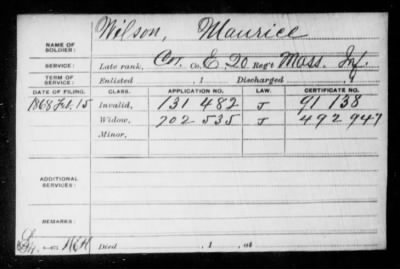 Wilson, Maurice
NAME OF SOLDIER:
SERVICE: Late rank, Co. E 20 Reg't Mass. Inf.
TERM OF SERVICE: Enlisted , 1 Discharged , 1
DATE OF FILING. CLASS. APPLICATION NO. LAW. CERTIFICATE NO.
1868 Feb. 15 Invalid, 131 482 J 91 138
Widow, 202 535 J 492 947
Minor,
ADDITIONAL SERVICES:
REMARKS:
Died , 1 , at